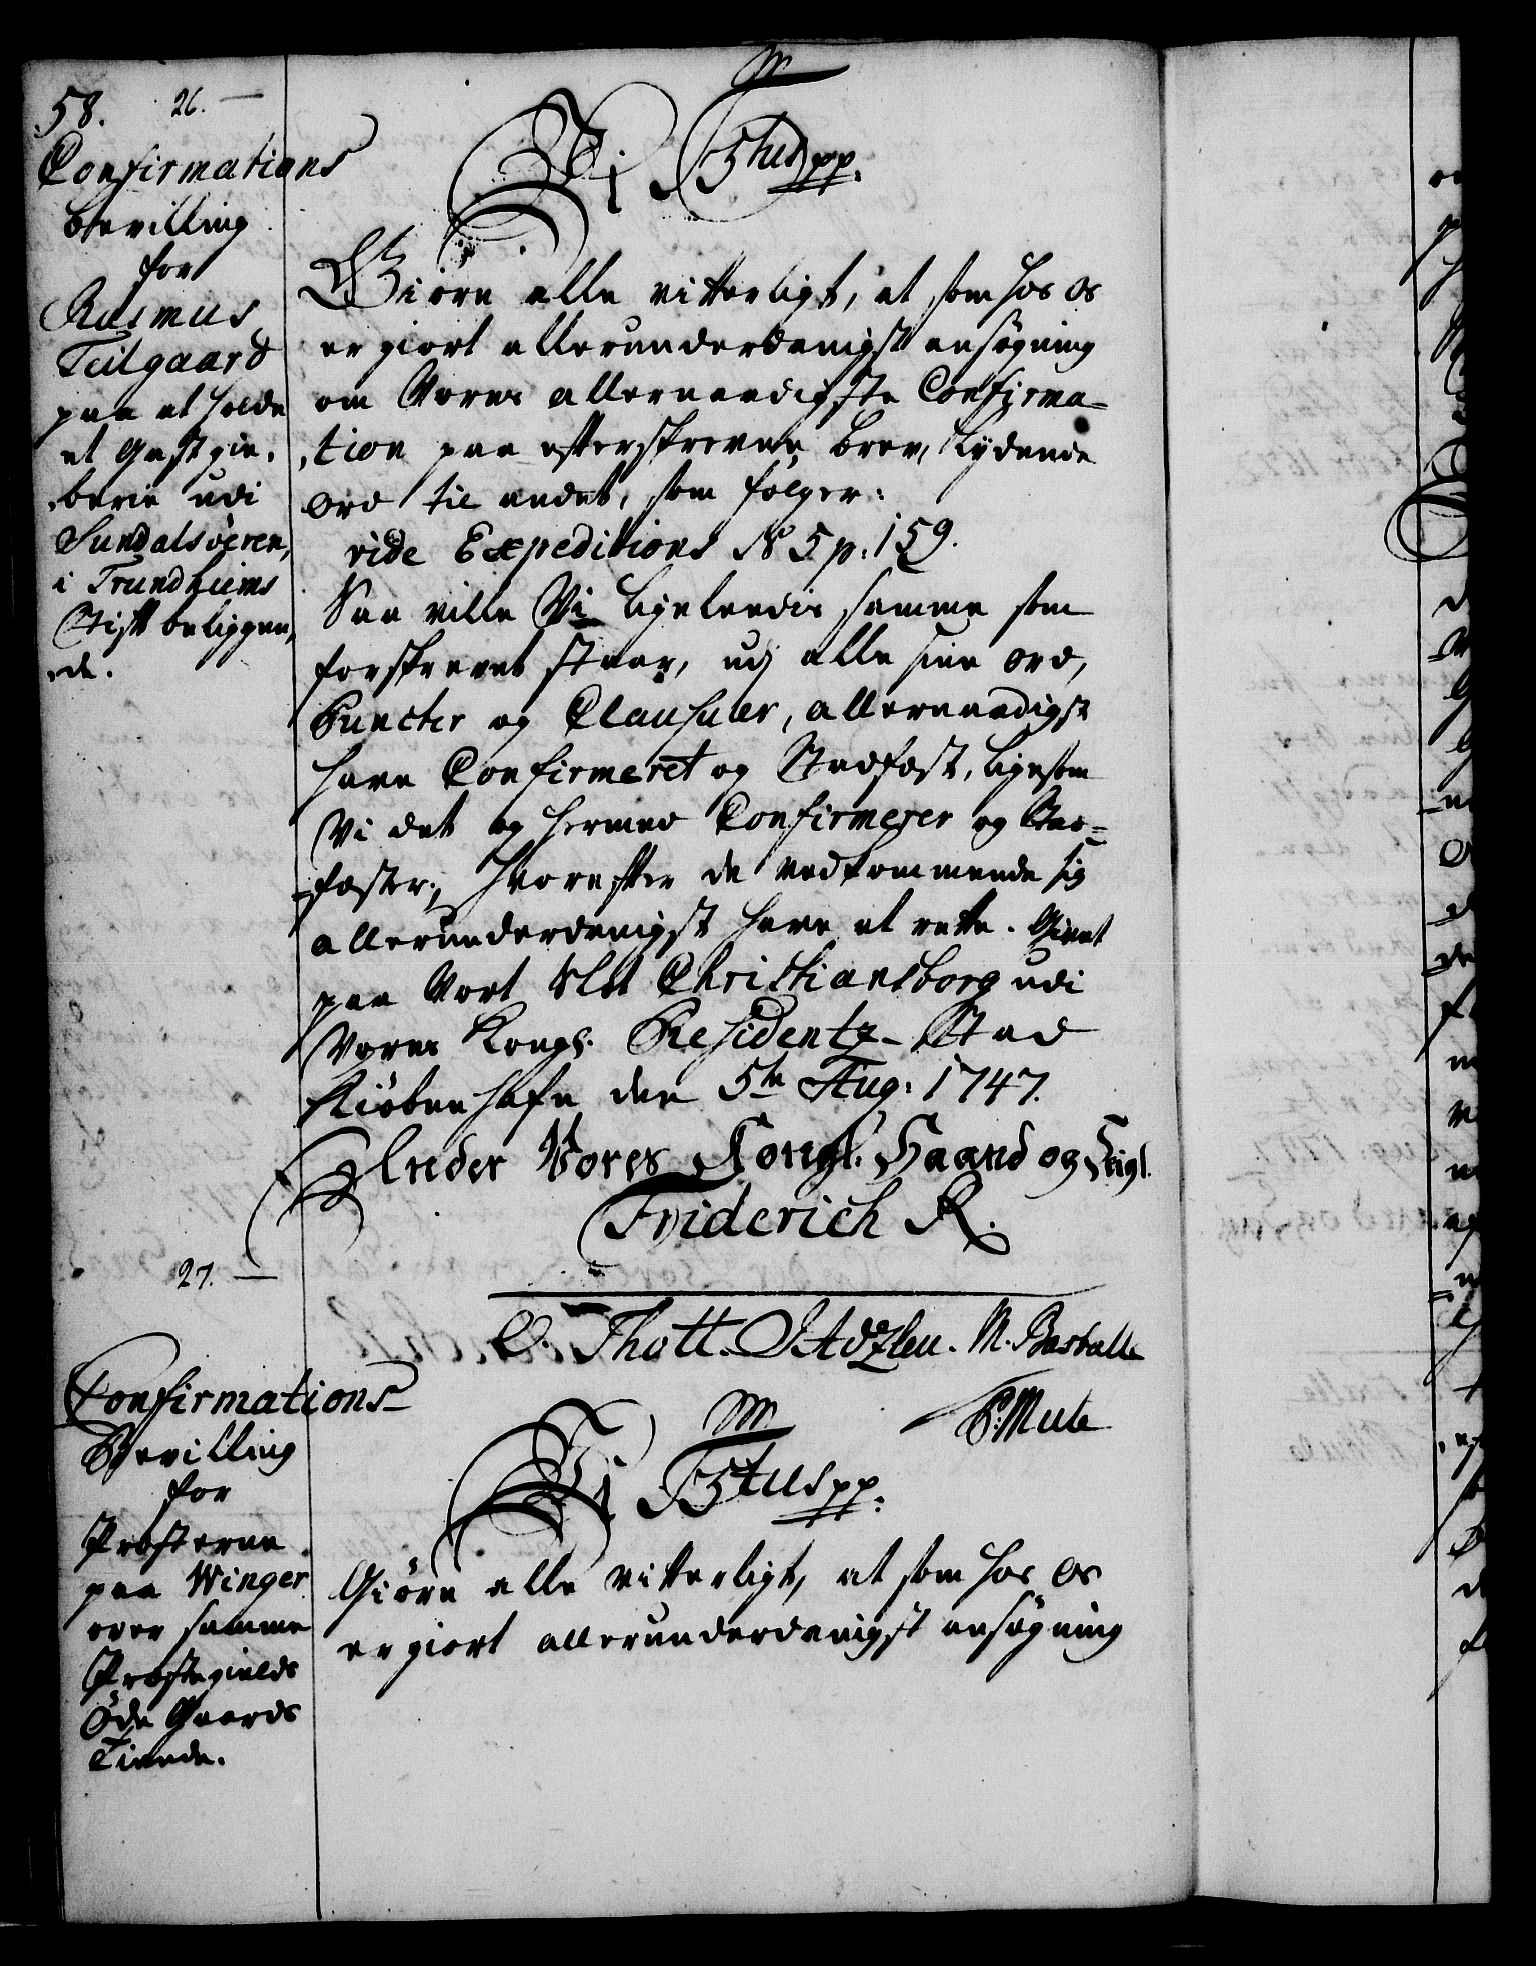 58. 26. —
Confirmations
bevilling
for
Rasmus
Teilgaard
paa at holde
et Gæstgie-
berie udi
Sundalsöeren,
i Trundheims
Stift beliggen,
de.
Vi Ftus pp.
Giöre alle vitterligt, at som hos os
er giort allerunderdanigst ansøgning
om Vores allernaadigste Confirma-
tion paa efterskrevne brev, Lydende
ord til andet, som følger:
vide Expeditions N 5 p: 159.
Saa ville Vi ligeleedis samme som
forskrevet staar, udj alle sine ord,
Puncter og Clausuler, allernaadigst
have Confirmeret og Stadfæst, ligesom
Vi det og hermed Confirmerer og Stad-
fæster; Hvorefter de vedkommende sig
allerunderdanigst have at rette. Givet
paa Vort Slot Christiansborg udi
Vores Kongl: Residentz-Stad
Kiöbenhafn den 5te Aug: 1747.
Under Vores Kongl: Haand og Seigl.
Friderich R.
O. Thott. M. Bartall
P. Mule
27. —
Confirmations-
Bevilling
for
Præsterne
paa Winger
over samme
Præstegields
Öde Gaards
Tiende.
Vi Ftus pp.
Giöre alle vitterligt, at som hos os
er giort allerunderdanigst ansøgning